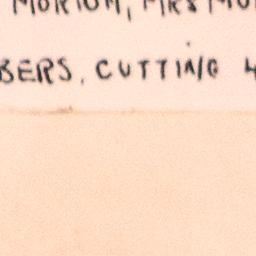 MORTON, MRS MO
BERS, CUTTING 4